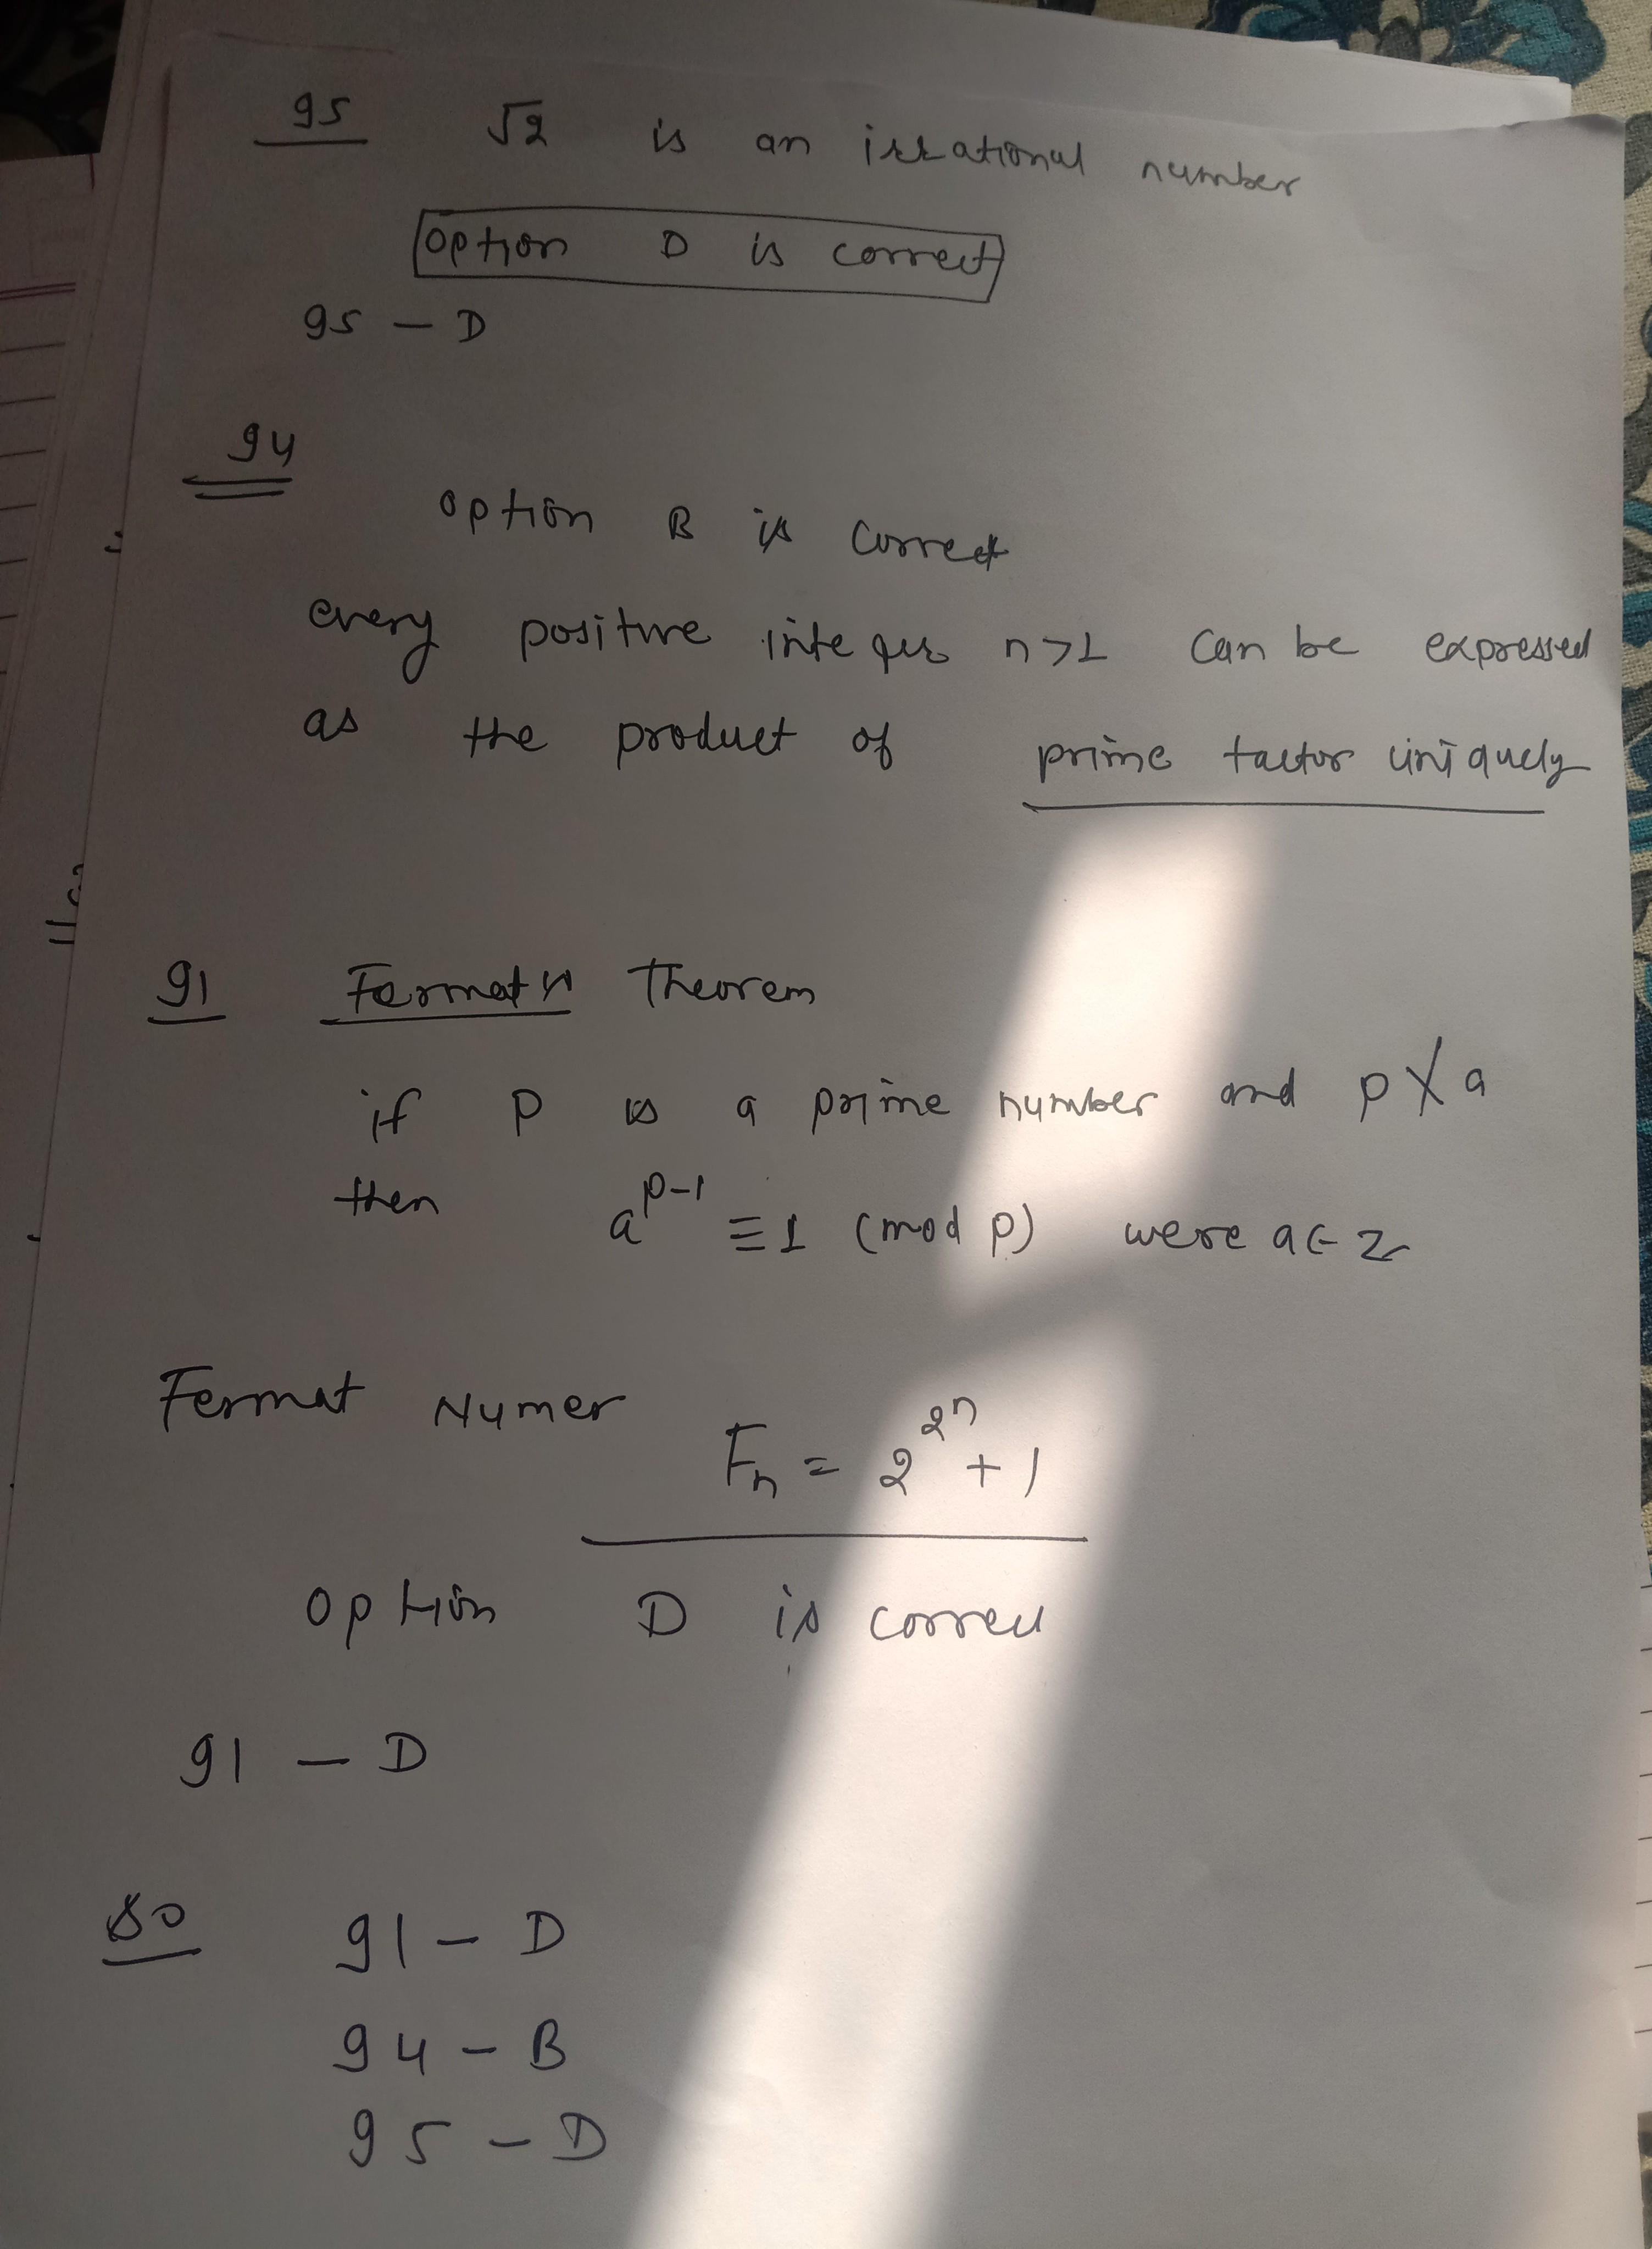 95 √2 is an irrational number
option D is correct
95 - D
94
option B is correct
every positive integer n>1 can be expressed
as the product of prime factor uniquely
91 Fermat's Theorem
if P is a prime number and p∤a
then a^{p-1} ≡ 1 (mod p) were a∈Z
Fermat Numer
F_n = 2^{2^n} + 1
option D is correct
91 - D
So 91 - D
94 - B
95 - D